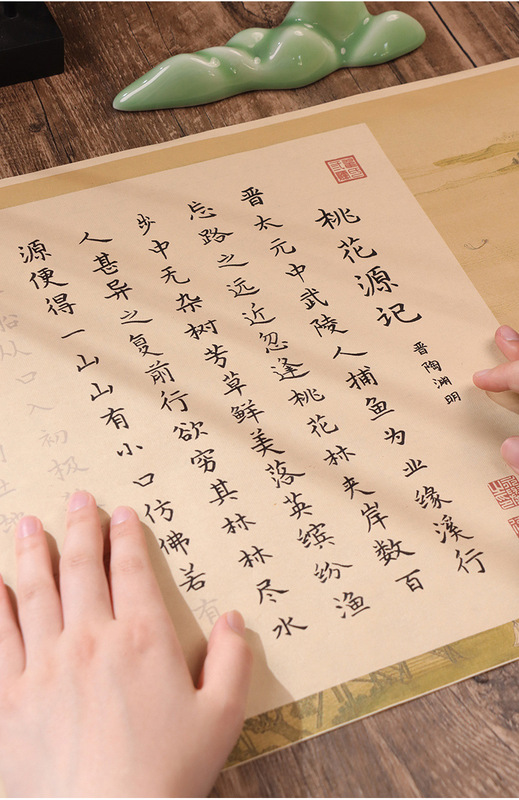 桃花源记
晋陶渊明
晋太元中武陵人捕鱼为业缘溪行
忘路之远近忽逢桃花林夹岸数百
步中无杂树芳草鲜美落英缤纷渔
人甚异之复前行欲穷其林林尽水
源便得一山山有小口仿佛若有
船从口入初极